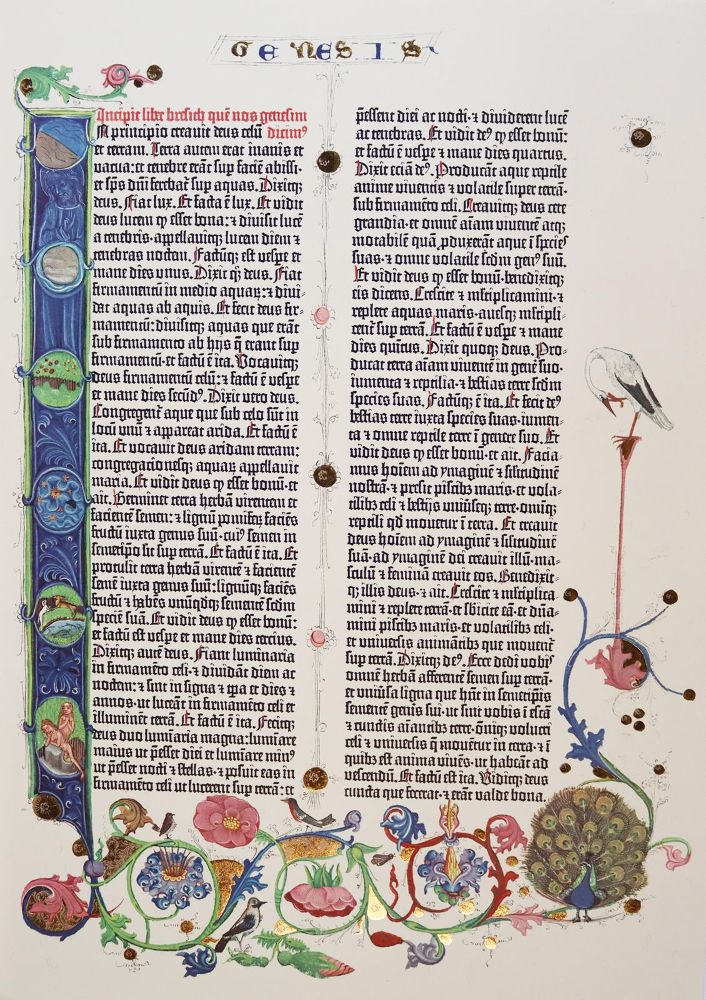 GENESIS
Incipit liber bresich quē nos genesim
In principio creavit deus celū dicimꝰ
et terram. Terra autem erat inanis et
vacua: et tenebre erāt sup faciē abissi:
et sp̄s dn̄i ferebat̄ sup aquas. Dixitqꝫ
deus. Fiat lux. Et facta ē lux. Et vidit
deus lucem qꝫ esset bona: ⁊ divisit lucē
a tenebris·appellavitqꝫ lucem diem ⁊
tenebras noctem. Factūqꝫ est vespe et
mane dies unus. Dixit qꝫ deus. Fiat
firmamentū in medio aquaꝝ: ⁊ divi-
dat aquas ab aquis. Et fecit deus fir-
mamentū: divisitqꝫ aquas que erāt
sub firmamento ab hijs q̄ erant sup
firmamentū: et factū ē ita. Vocavitqꝫ
deus firmamentū celū: ⁊ factū ē vespe
et mane dies secūdꝰ. Dixit vero deus.
Congregent̄ aque que sub celo sūt in
locū unū ⁊ appareat arida. Et factū ē
ita. Et vocavit deus aridam terram:
congregacionesqꝫ aquaꝝ appellavit
maria. Et vidit deus qꝫ esset bonū·et
ait. Germinet terra herbā virentem et
facientē semen: ⁊ lignū pomifeꝝ faciēs
fructū iuxta genus suū·cuiꝰ semen in
semetipō sit sup terrā. Et factū ē ita. Et
protulit terra herbā virentē ⁊ facientē
semē iuxta genus suū: lignūqꝫ faciēs
fructū ⁊ habēs unūqdqꝫ sementē scdm
speciē suā. Et vidit deus qꝫ esset bonū:
et factū est vespe et mane dies tercius.
Dixitqꝫ autē deus. Fiant luminaria
in firmamēto celi·⁊ dividāt diem ac
noctem: ⁊ sint in signa ⁊ tp̄a et dies ⁊
annos·ut luceāt in firmamēto celi et
illuminēt terrā. Et factū ē ita. Fecitqꝫ
deus duo luminaria magna: lumīare
maius ut p̄esset diei et lumīare minꝰ
ut p̄esset nocti ⁊ stellas·⁊ posuit eas in
firmamēto celi ut lucerent sup terrā: et
p̄essent diei ac nocti·⁊ dividerent lucē
ac tenebras. Et vidit deꝰ qꝫ esset bonū:
et factū ē vespe ⁊ mane dies quartus.
Dixit eciā deꝰ. Producāt aque reptile
anime viventis ⁊ volatile super terrā·
sub firmamento celi. Creavitqꝫ deus cete
grandia·et omnē aīam viventē atqꝫ
motabilē quā ꝓduxerāt aque ī species
suas·⁊ omne volatile scdm genꝰ suū.
Et vidit deus qꝫ esset bonū·benedixitqꝫ
eis dicens. Crescite ⁊ mltiplicamini·⁊
replete aquas maris·avesqꝫ mltipli-
cent̄ sup terrā. Et factū ē vespe ⁊ mane
dies quītus. Dixit quoqꝫ deus. Pro-
ducat terra aīam viventē in genē suo·
iumenta ⁊ reptilia·⁊ bestias terre scdm
species suas. Factūqꝫ ē ita. Et fecit deꝰ
bestias terre iuxta species suas·iumen-
ta ⁊ omne reptile terre ī genere suo. Et
vidit deus qꝫ esset bonū·et ait. Facia-
mus hoīem ad ymaginē ⁊ silitudinē
nostrā·⁊ presit piscibꝫ maris·et vola-
tilibꝫ celi ⁊ bestijs univsēqꝫ terre·omīqꝫ
reptili qd̄ movetur ī terra. Et creavit
deus hoīem ad ymaginē ⁊ silitudinē
suā·ad ymaginē dei creavit illū·ma-
sculū ⁊ feminā creavit eos. Benedixit-
qꝫ illis deus·⁊ ait. Crescite ⁊ mltiplica-
mini ⁊ replete terrā·et sbicite eā·et dn̄a-
mini piscibꝫ maris·et volatilibꝫ celi·
et universis animātibꝫ que movent̄
sup terrā. Dixitqꝫ deꝰ. Ecce dedi vobꝭ
omnē herbā afferentē semen sup terrā·
et univsa ligna que hn̄t in semetipīs
sementē genꝭis sui·ut sint vobis ī escā
⁊ cunctis aīantibꝫ terre·oīniqꝫ volucri
celi ⁊ universis q̄ movent̄ in terra·⁊ ī
quibꝫ est anima vivēs·ut habeāt ad
vescendū. Et factū est ita. Viditqꝫ deus
cuncta que fecerat·⁊ erāt valde bona.